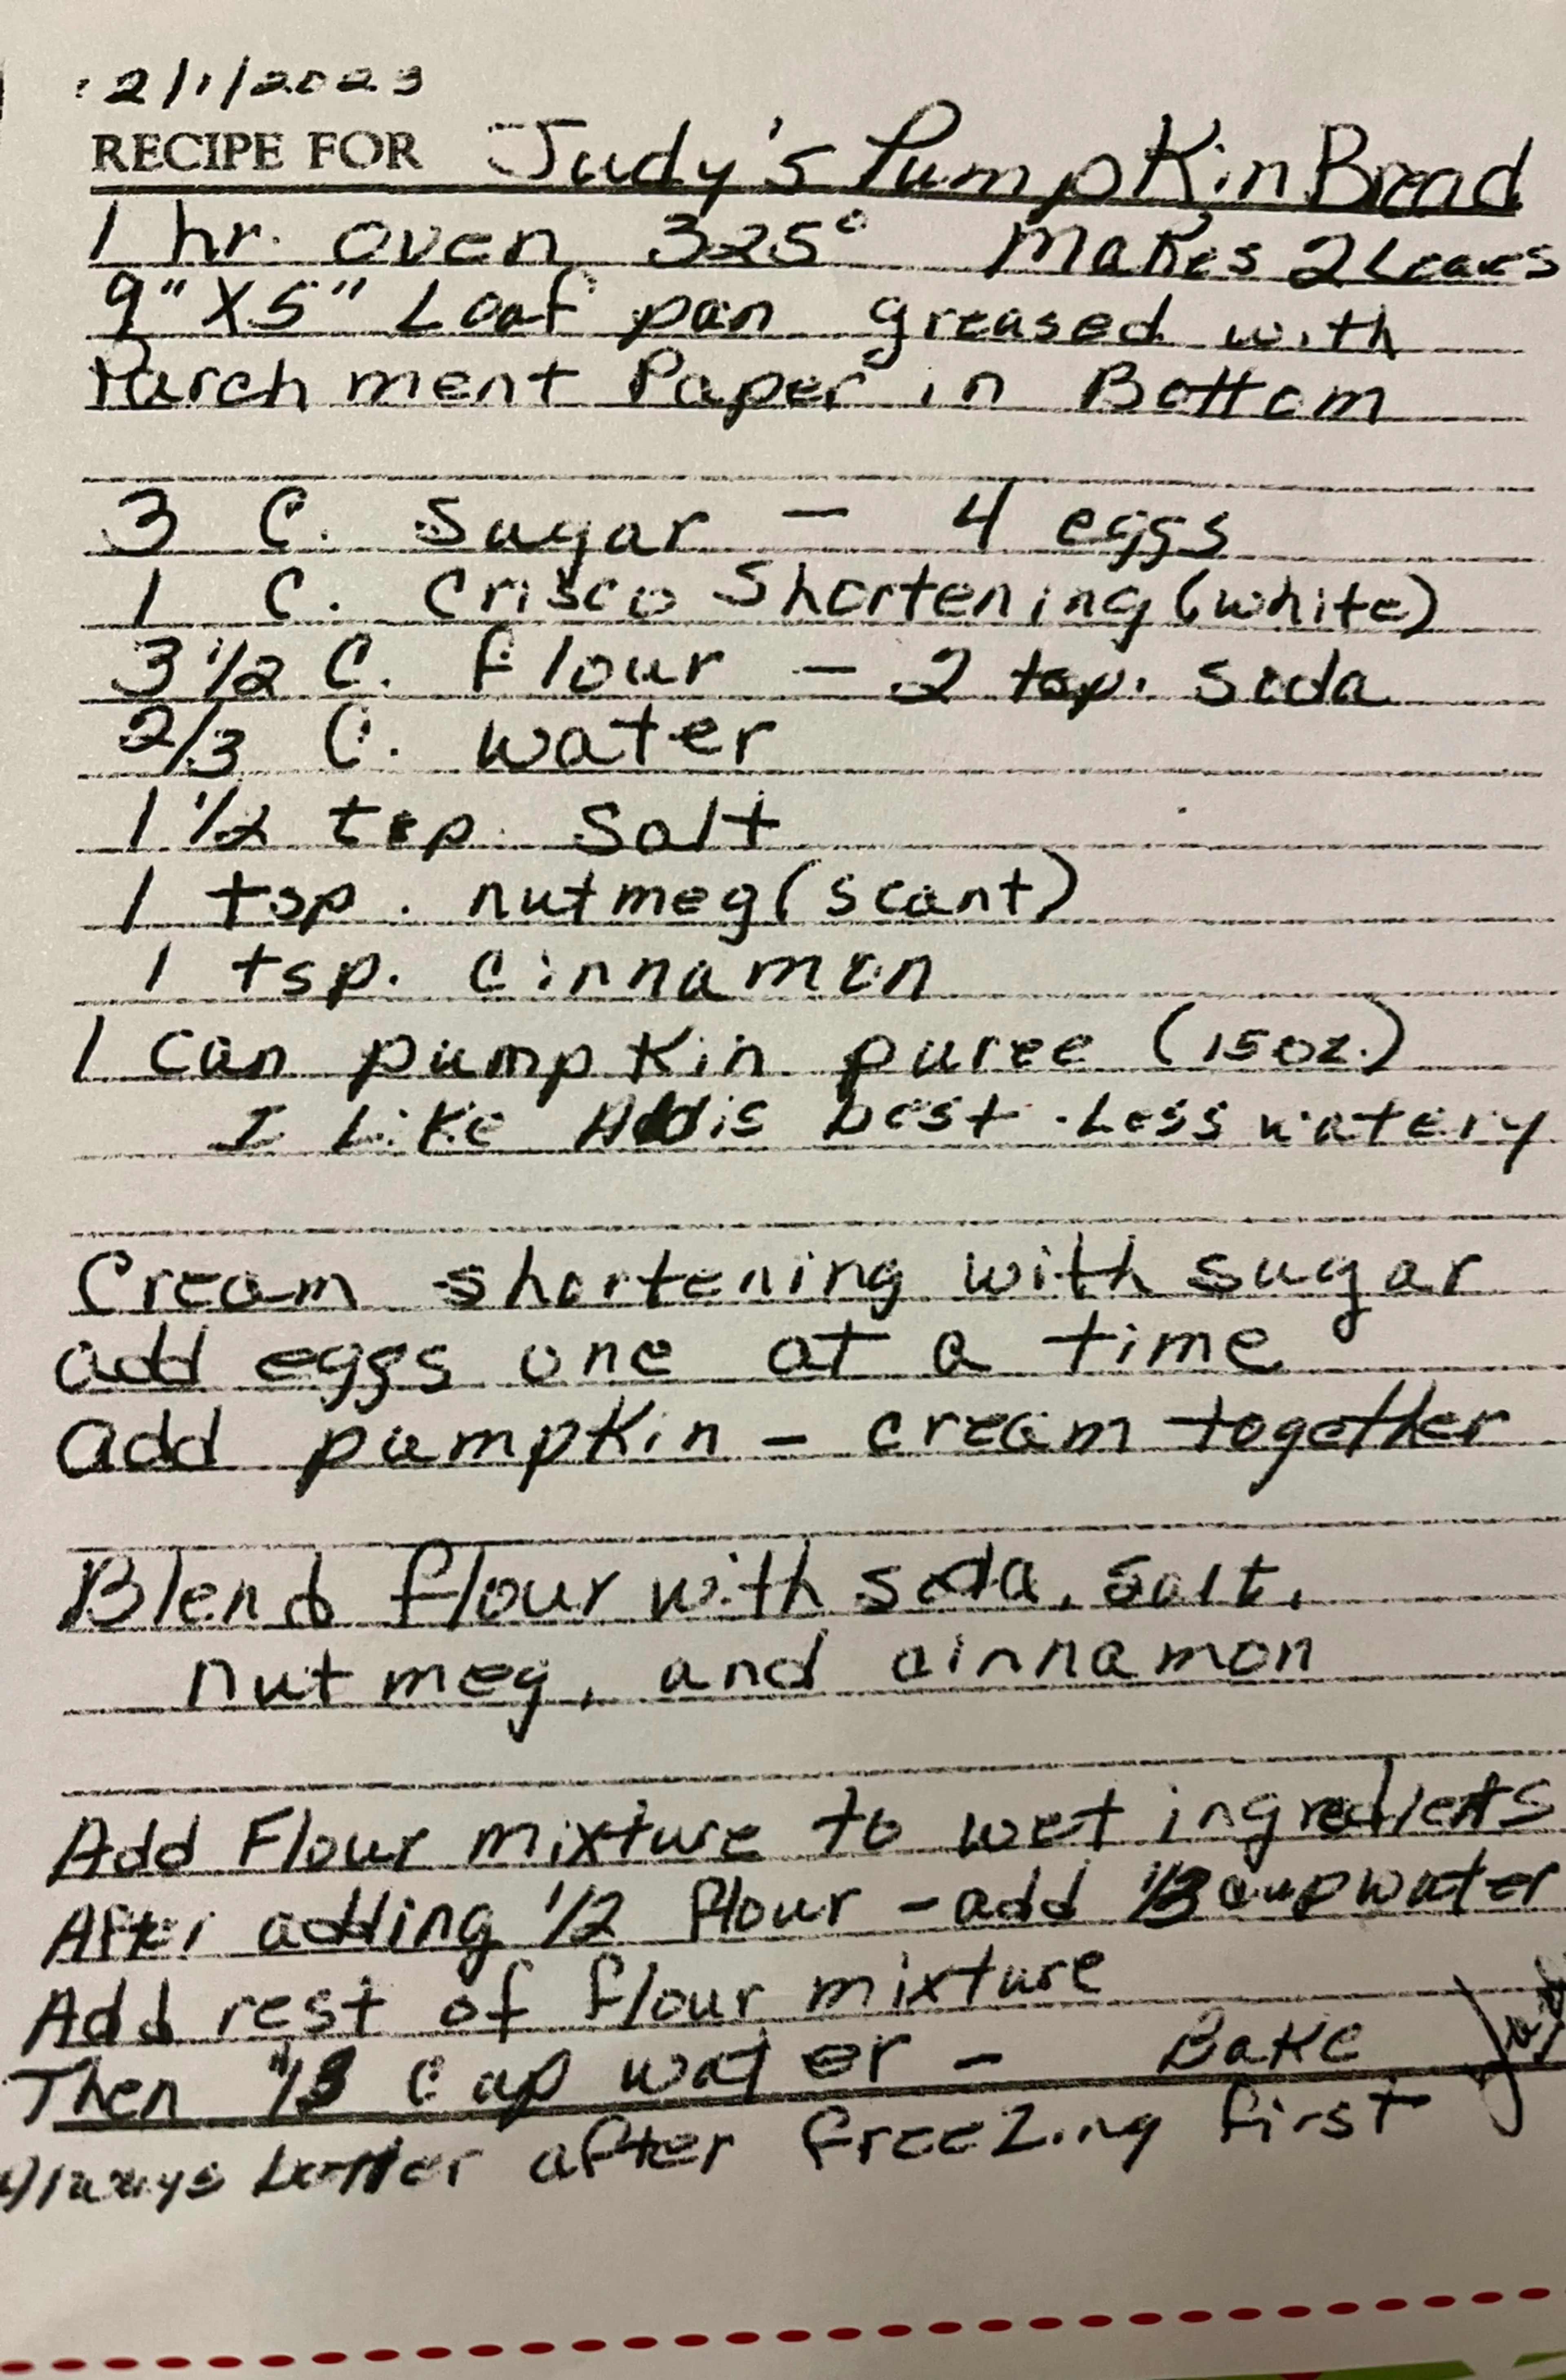 12/1/2023
RECIPE FOR Judy's Pumpkin Bread
1 hr. oven 325° Makes 2 Loaves
9" X 5" Loaf pan greased with
Parchment Paper in Bottom
3 C. Sugar — 4 eggs
1 C. Crisco Shortening (white)
3 1/2 C. flour — 2 tsp. soda
2/3 C. water
1 1/2 tsp. Salt
1 tsp. nutmeg (scant)
1 tsp. cinnamon
1 can pumpkin puree (15 oz.)
I Like best - Less watery
Cream shortening with sugar
add eggs one at a time
add pumpkin — cream together
Blend flour with soda, salt,
nutmeg, and cinnamon
Add Flour mixture to wet ingredients
After adding 1/2 flour — add 1/3 cup water
Add rest of flour mixture
Then 1/3 cup water — Bake
Always better after freezing first